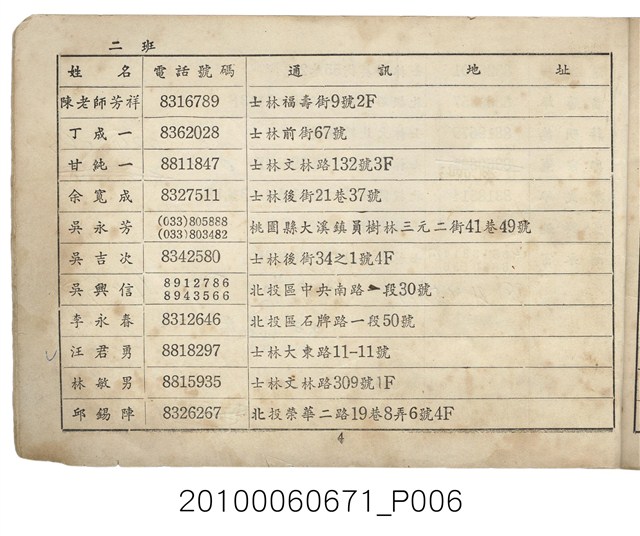 二班
姓名 電話號碼 通訊地址
陳老師芳祥 8316789 士林福壽街9號2F
丁成一 8362028 士林前街67號
甘純一 8811847 士林文林路132號3F
余寬成 8327511 士林後街21巷37號
吳永芳 (033)805888 (033)803482 桃園縣大溪鎮員樹林三元二街41巷49號
吳吉次 8342580 士林後街34之1號4F
吳興信 8912786 8943566 北投區中央南路一段30號
李永春 8312646 北投區石牌路一段50號
汪君勇 8818297 士林大東路11-11號
林敏男 8815935 士林文林路309號1F
邱錫陣 8326267 北投榮華二路19巷8弄6號4F
4
20100060671_P006